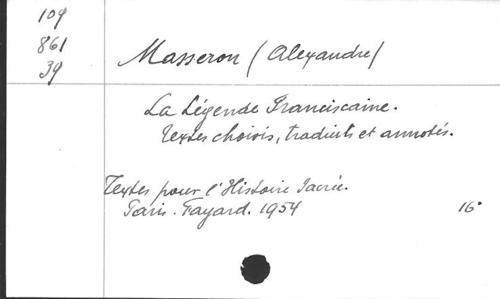 109
861
39
Masseron (Alexandre)
La Légende Franciscaine.
Textes choisis, traduits et annotés.
Textes pour l'Histoire Sacrée.
Paris. Fayard. 1954
16°